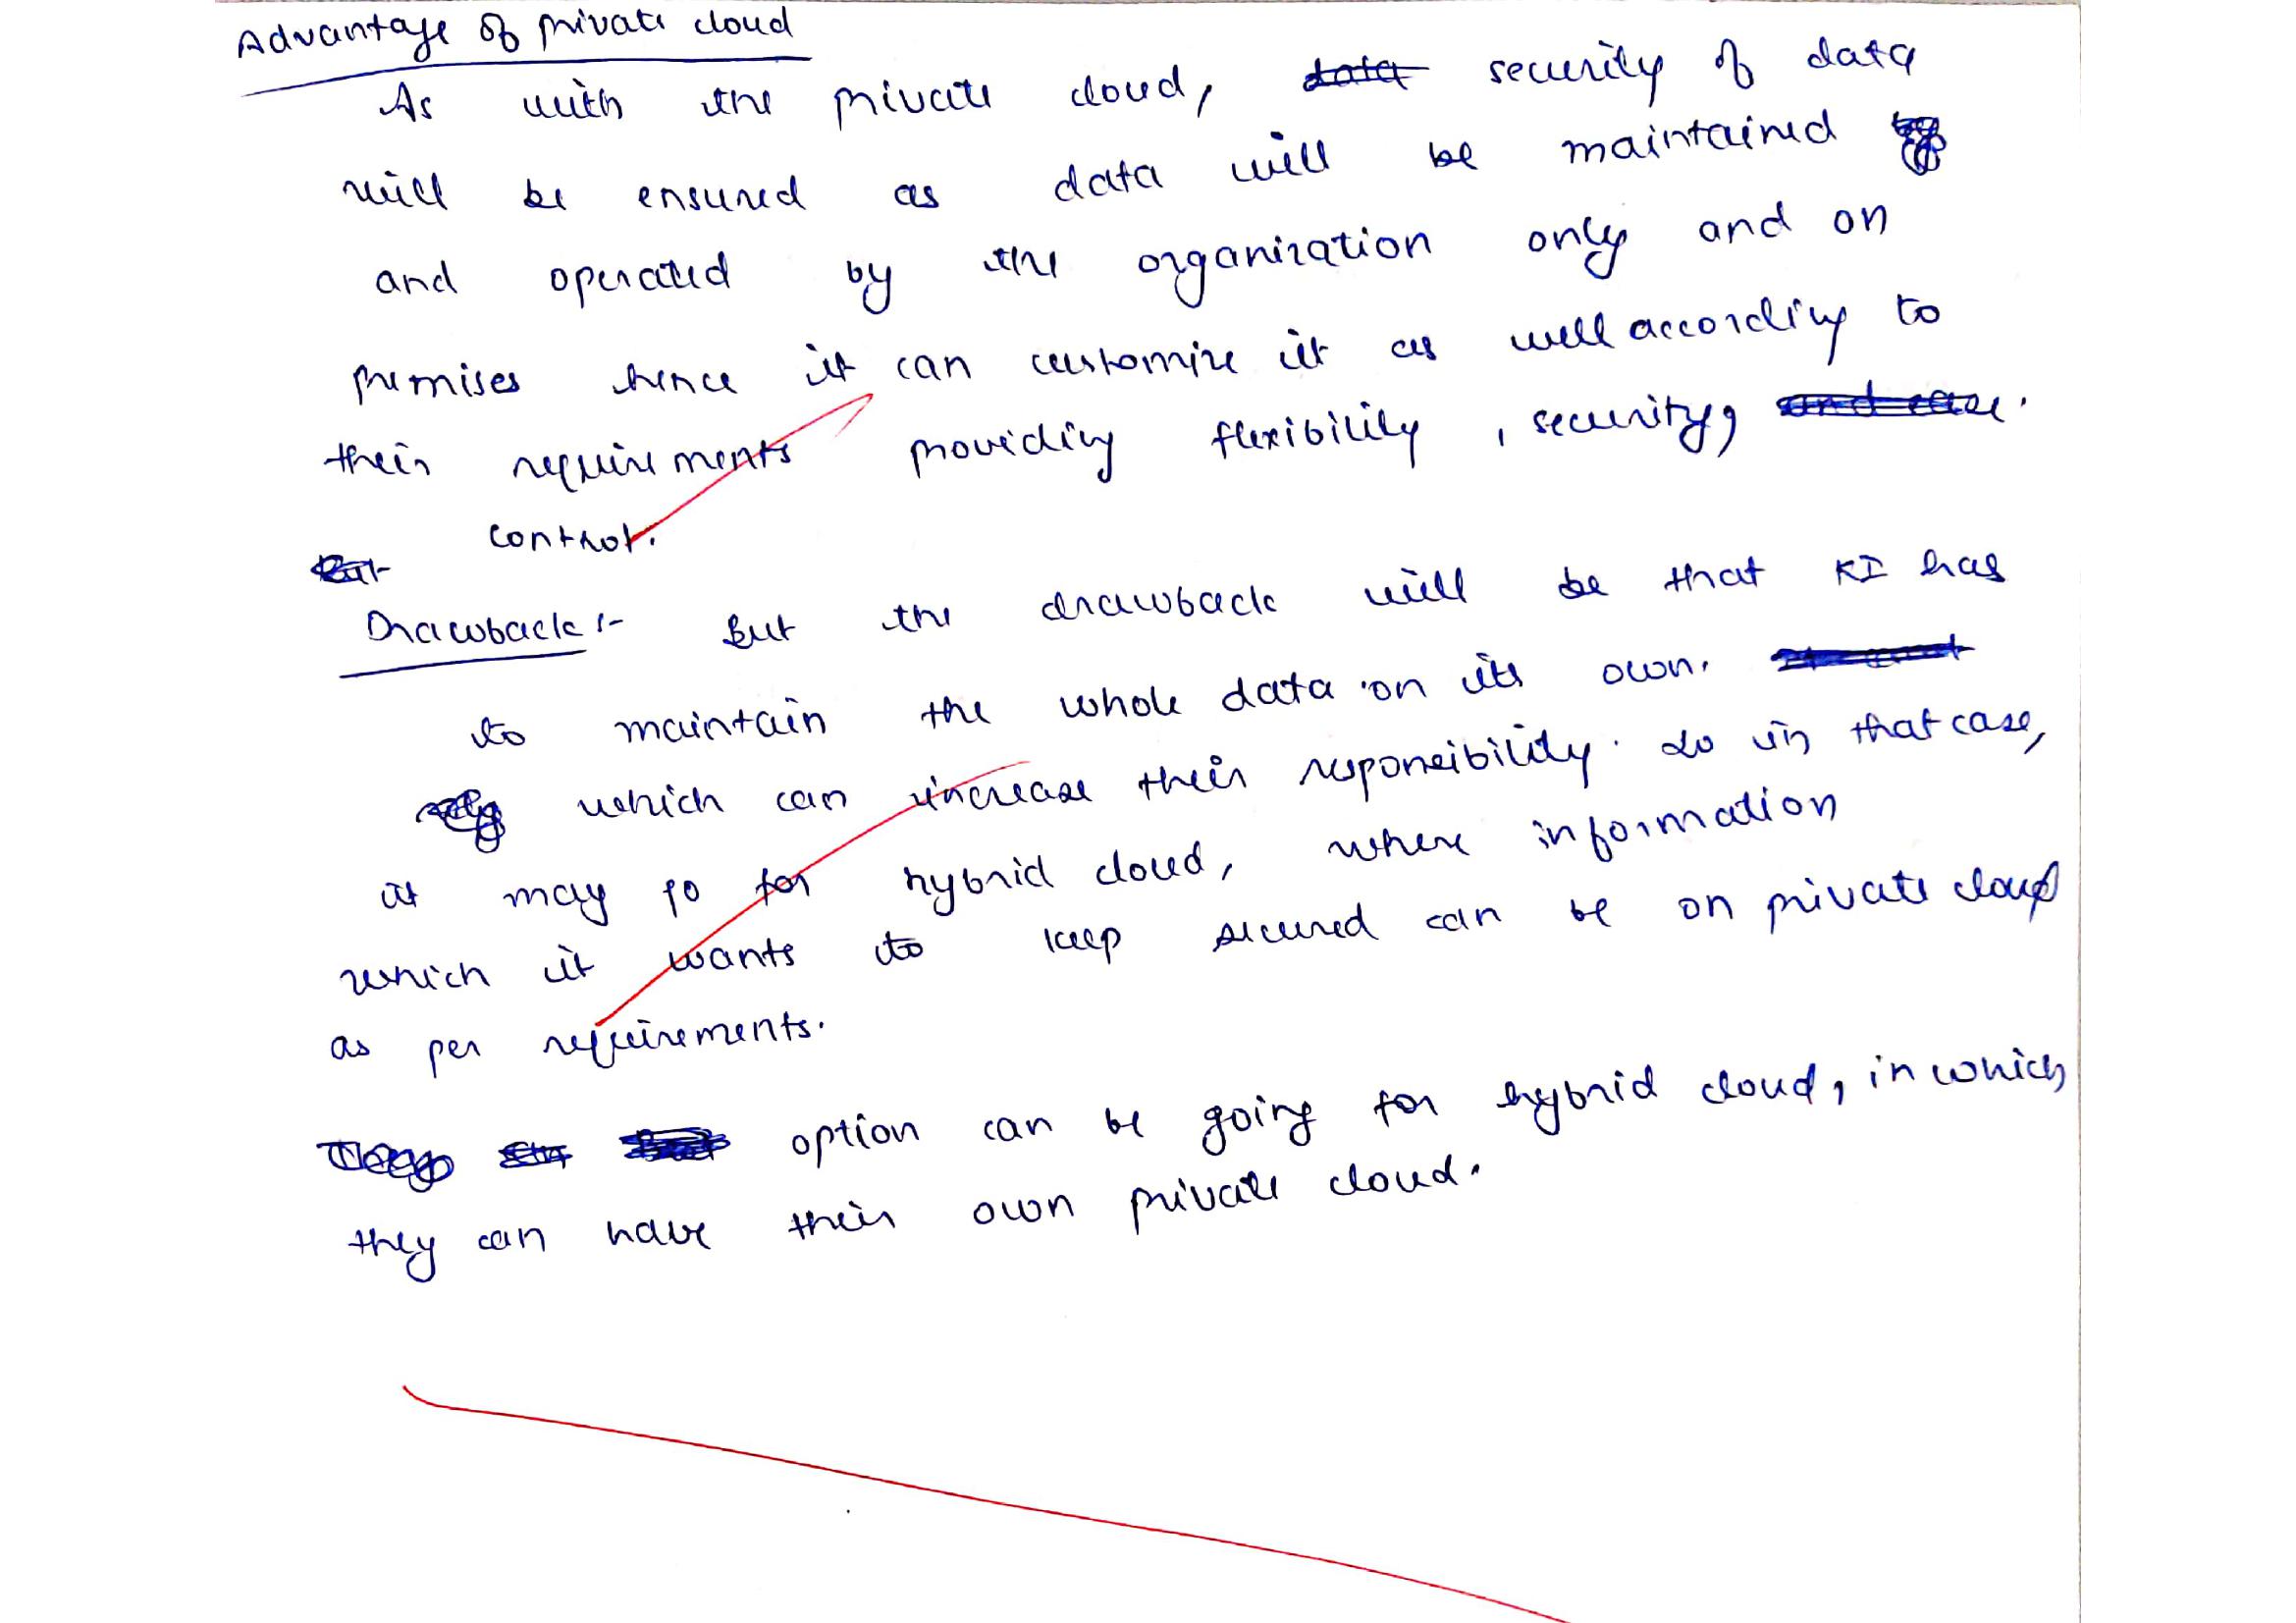 Advantage of private cloud
As with the private cloud, data security of data
will be ensured as data will be maintained
and operated by the organization only and on
premises hence it can customize it as well according to
their requirements providing flexibility, security, and ease.
But control.
Drawback :- But the drawback will be that KI has
to maintain the whole data on its own.
which can increase their responsibility. So in that case,
it may go for hybrid cloud, where information
which it wants to keep secured can be on private cloud
as per requirements.
option can be going for hybrid cloud, in which
they can have their own private cloud.